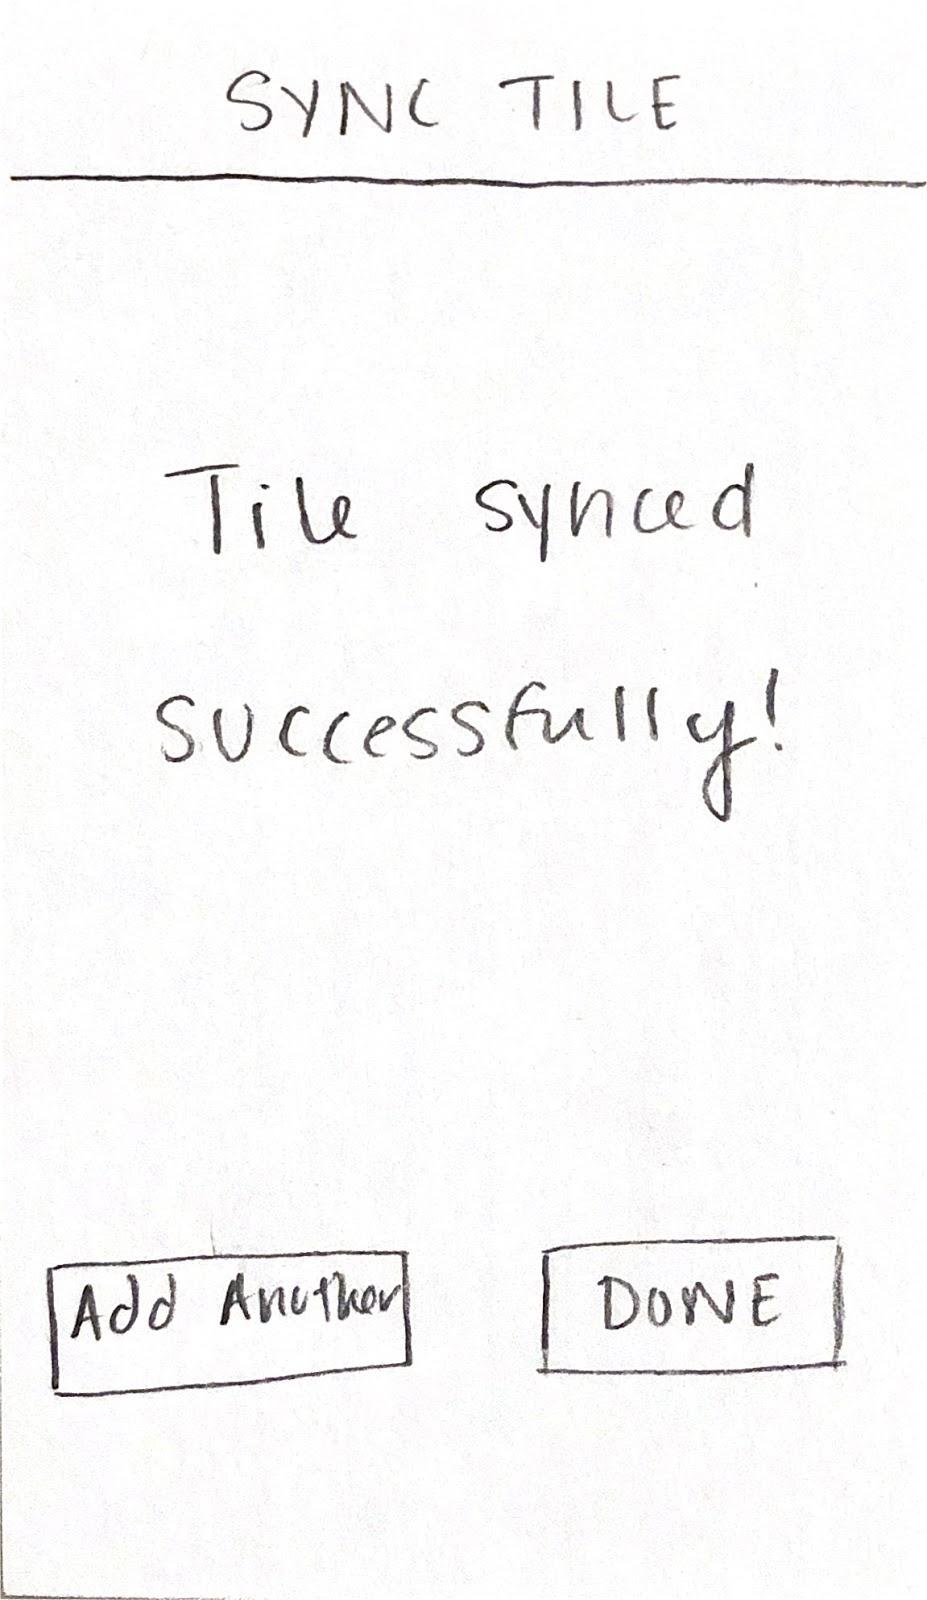 SYNC TILE
Tile synced
successfully!
Add Another
DONE